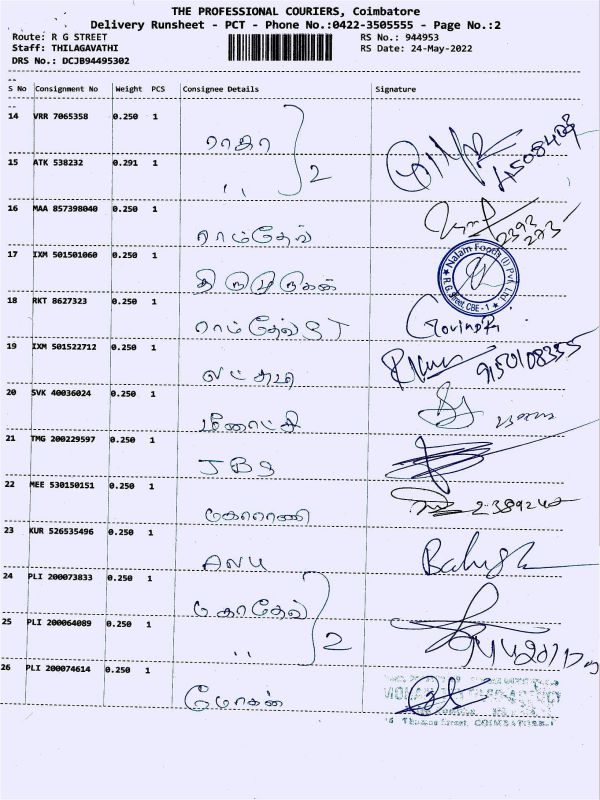 THE PROFESSIONAL COURIERS, Coimbatore
Delivery Runsheet - PCT - Phone No.:0422-3505555 - Page No.:2
Route: R G STREET RS No.: 944953
Staff: THILAGAVATHI RS Date: 24-May-2022
DRS No.: DCJB94495302
S No Consignment No Weight PCS Consignee Details Signature
14 VRR 7065358 0.250 1 ராதா
15 ATK 538232 0.291 1 ,, 2
16 MAA 857398040 0.250 1 ராம்தேவ்
17 IXM 501501060 0.250 1 திருமுருகன் Nalam Foods (I) Pvt. Ltd. ★ R G Street, CBE - 1 ★
18 RKT 8627323 0.250 1 ராம்தேவ் S T
19 IXM 501522712 0.250 1 9150108355
20 SVK 40036024 0.250 1 மீனாட்சி
21 TMG 200229597 0.250 1 JBS
22 MEE 530150151 0.250 1 மகாராணி
23 KUR 526535496 0.250 1 ANU
24 PLI 200073833 0.250 1 மகாதேவ்
25 PLI 200064089 0.250 1 ,, 2
26 PLI 200074614 0.250 1 மோகன்